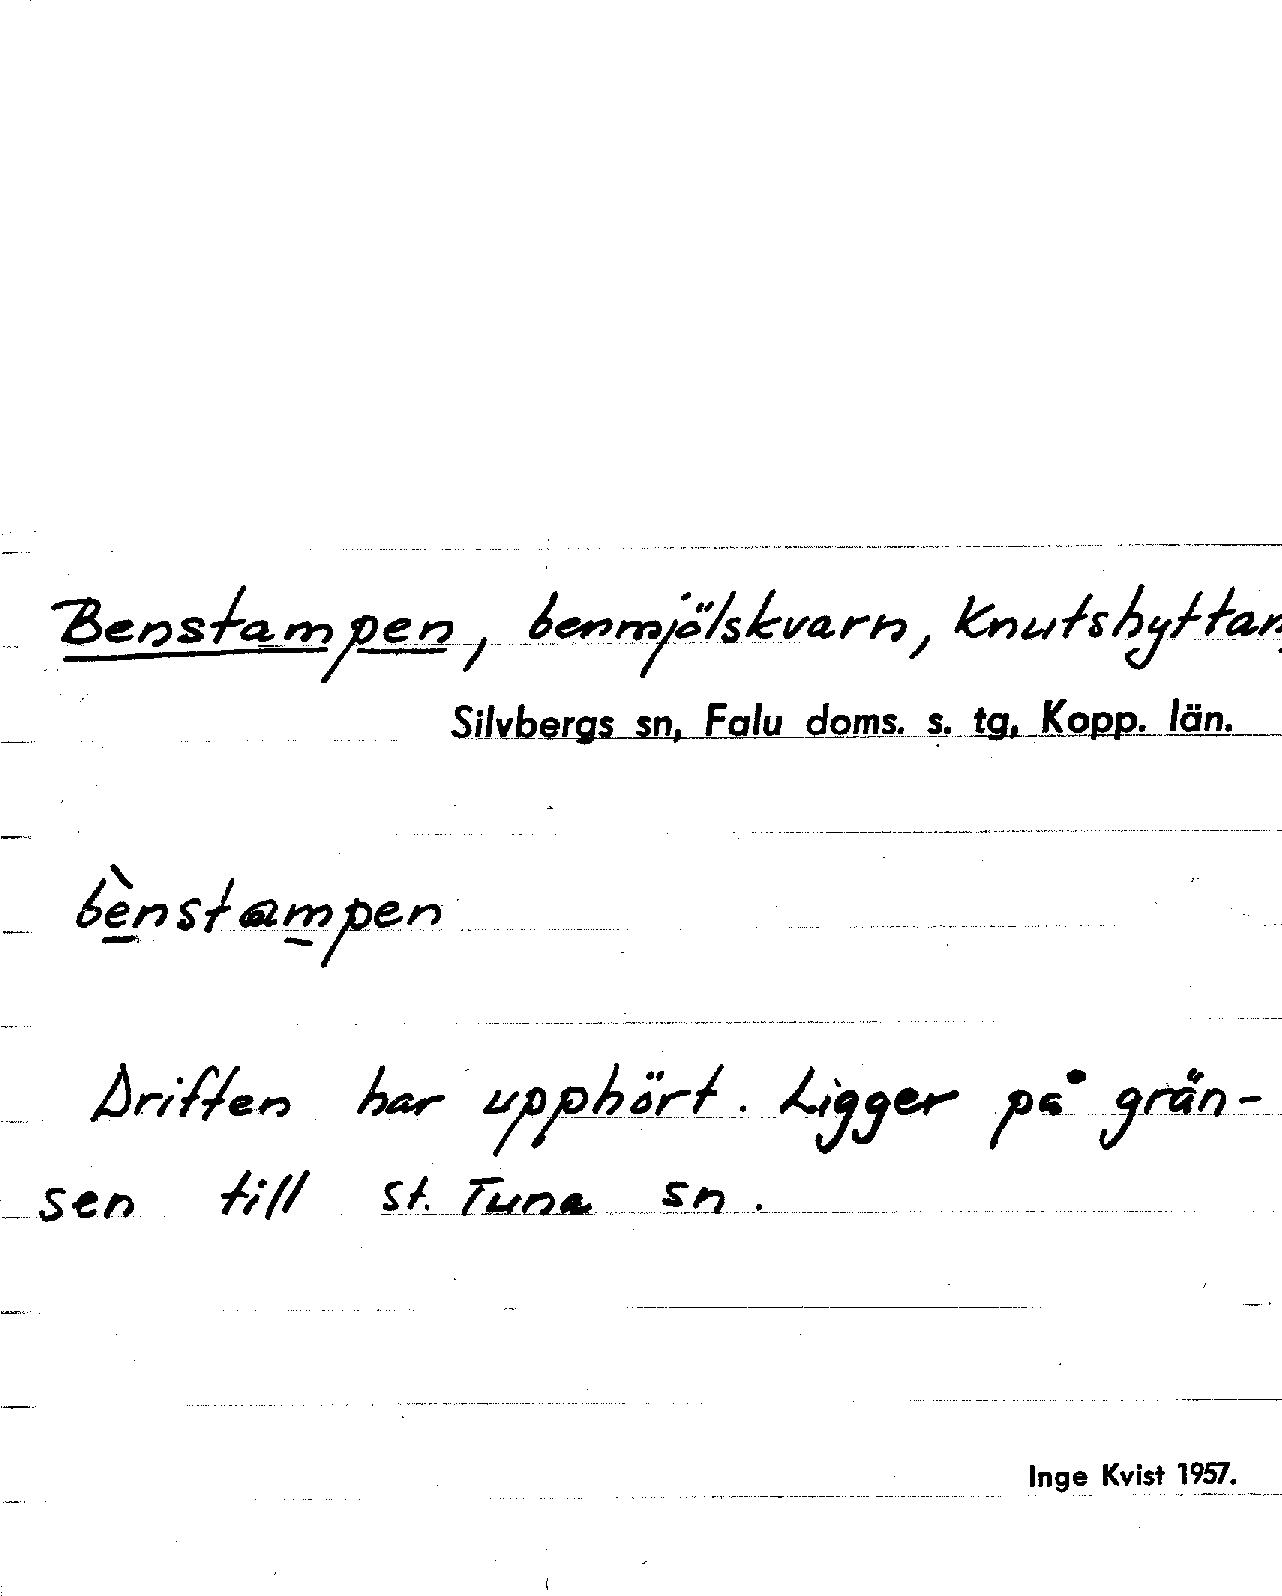 Benstampen, benmjölskvarn, Knutshyttan,
Silvbergs sn, Falu doms. s. tg, Kopp. län.
bènstampen
Driften har upphört. Ligger på grän-
sen till St. Tuna sn.
Inge Kvist 1957.